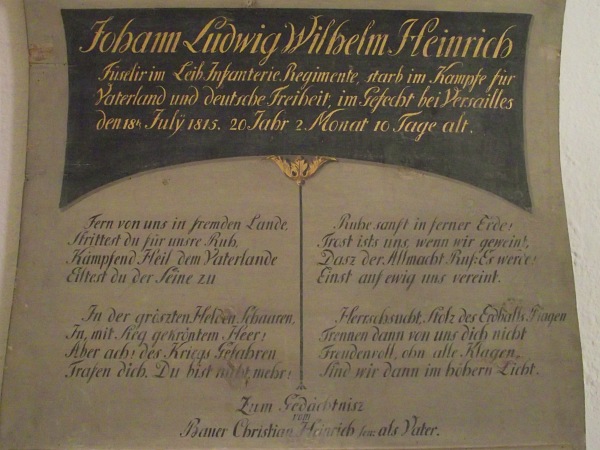 Johann Ludwig Wilhelm Heinrich
Füselir im Leib Infanterie Regimente, starb im Kampfe für
Vaterland und deutsche Freiheit, im Gefecht bei Versailles
den 18t. Julÿ 1815. 20 Jahr 2. Monat 10 Tage alt.
Fern von uns in fremden Lande,
Strittest du für unsre Ruh,
Kämpfend Heil dem Vaterlande
Eiltest du der Seine zu
In der gröszten Helden Schaaren,
In, mit Sieg gekröntem Heer!
Aber ach! des Kriegs Gefahren
Trafen dich. Du bist nicht mehr!
Ruhe sanft in ferner Erde!
Trost ists uns, wenn wir geweint,
Dasz der Allmacht Ruf: Es werde!
Einst auf ewig uns vereint.
Herrschsucht, Stolz des Erdballs Plagen
Trennen dann von uns dich nicht
Freudenvoll, ohn alle Klagen
Sind wir dann im höhern Licht.
Zum Gedächtnisz
vom
Bauer Christian Heinrich sen: als Vater.